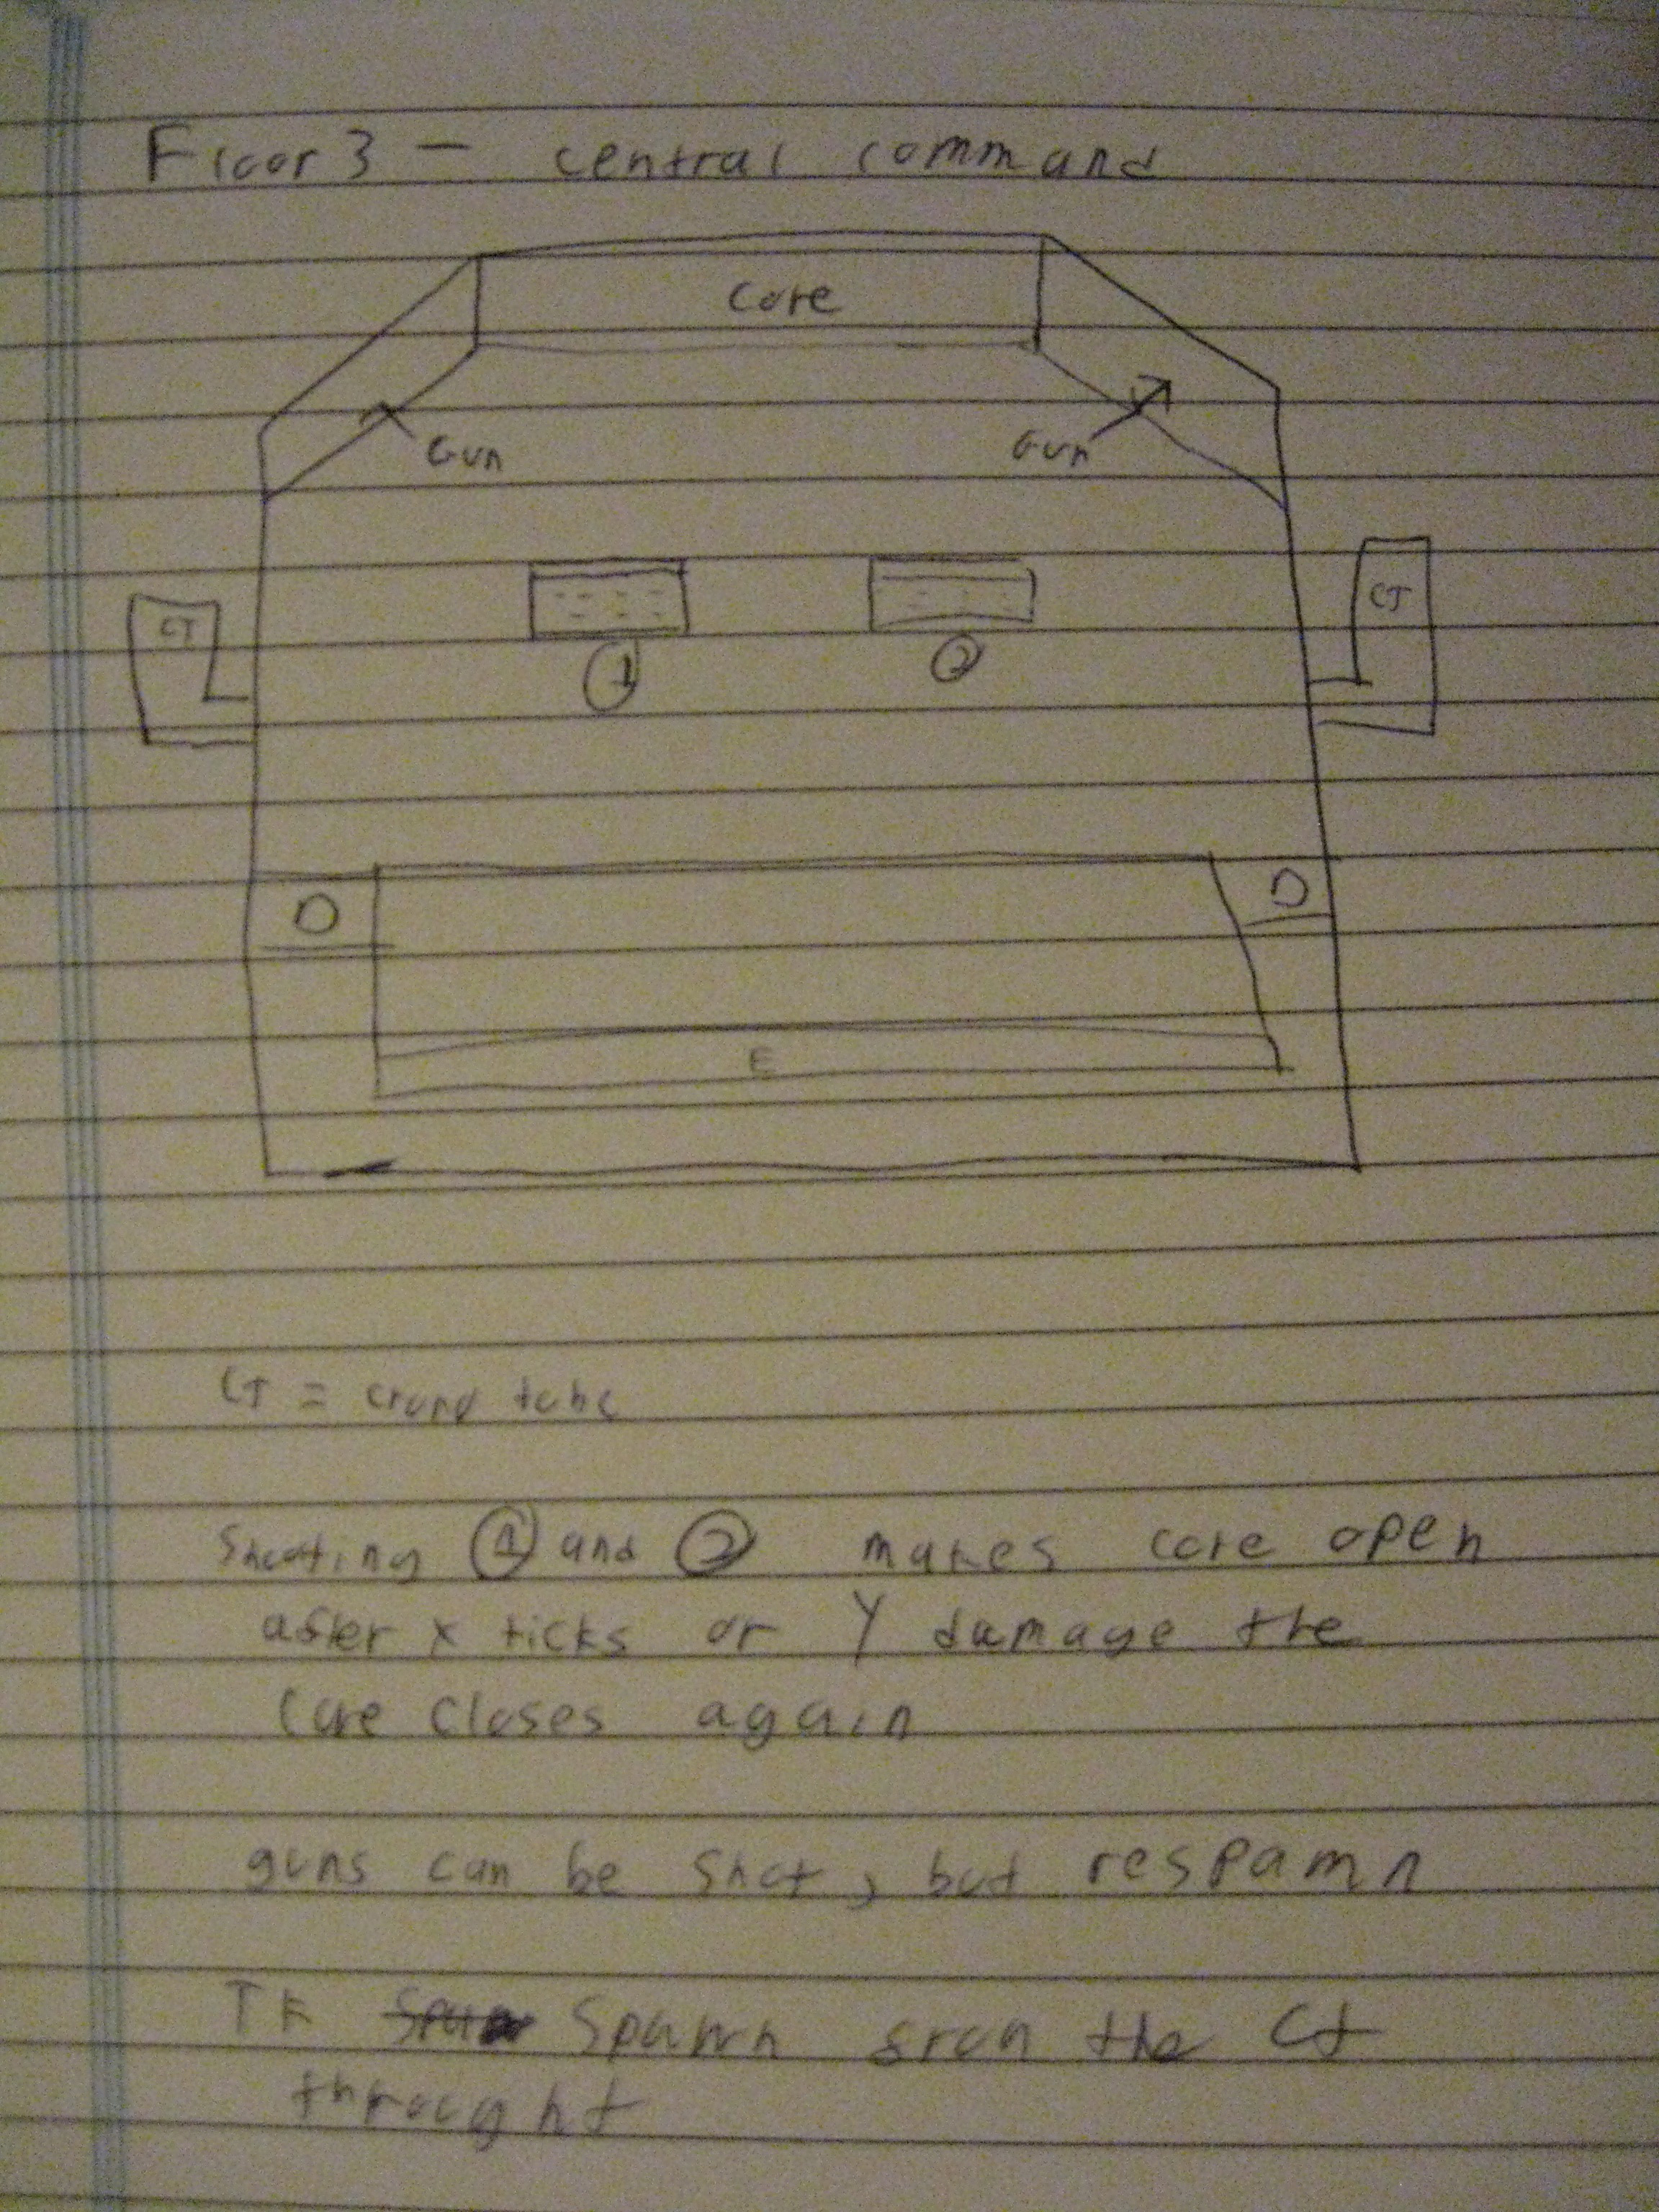 Floor 3 - central command
Core
Gun Gun
CT CT
1 2
D D
E
CT = crawl tube
Shooting 1 and 2 makes core open
after x ticks or Y damage the
core closes again
guns can be shot, but respawn
TF Spawn from the Ct
throught